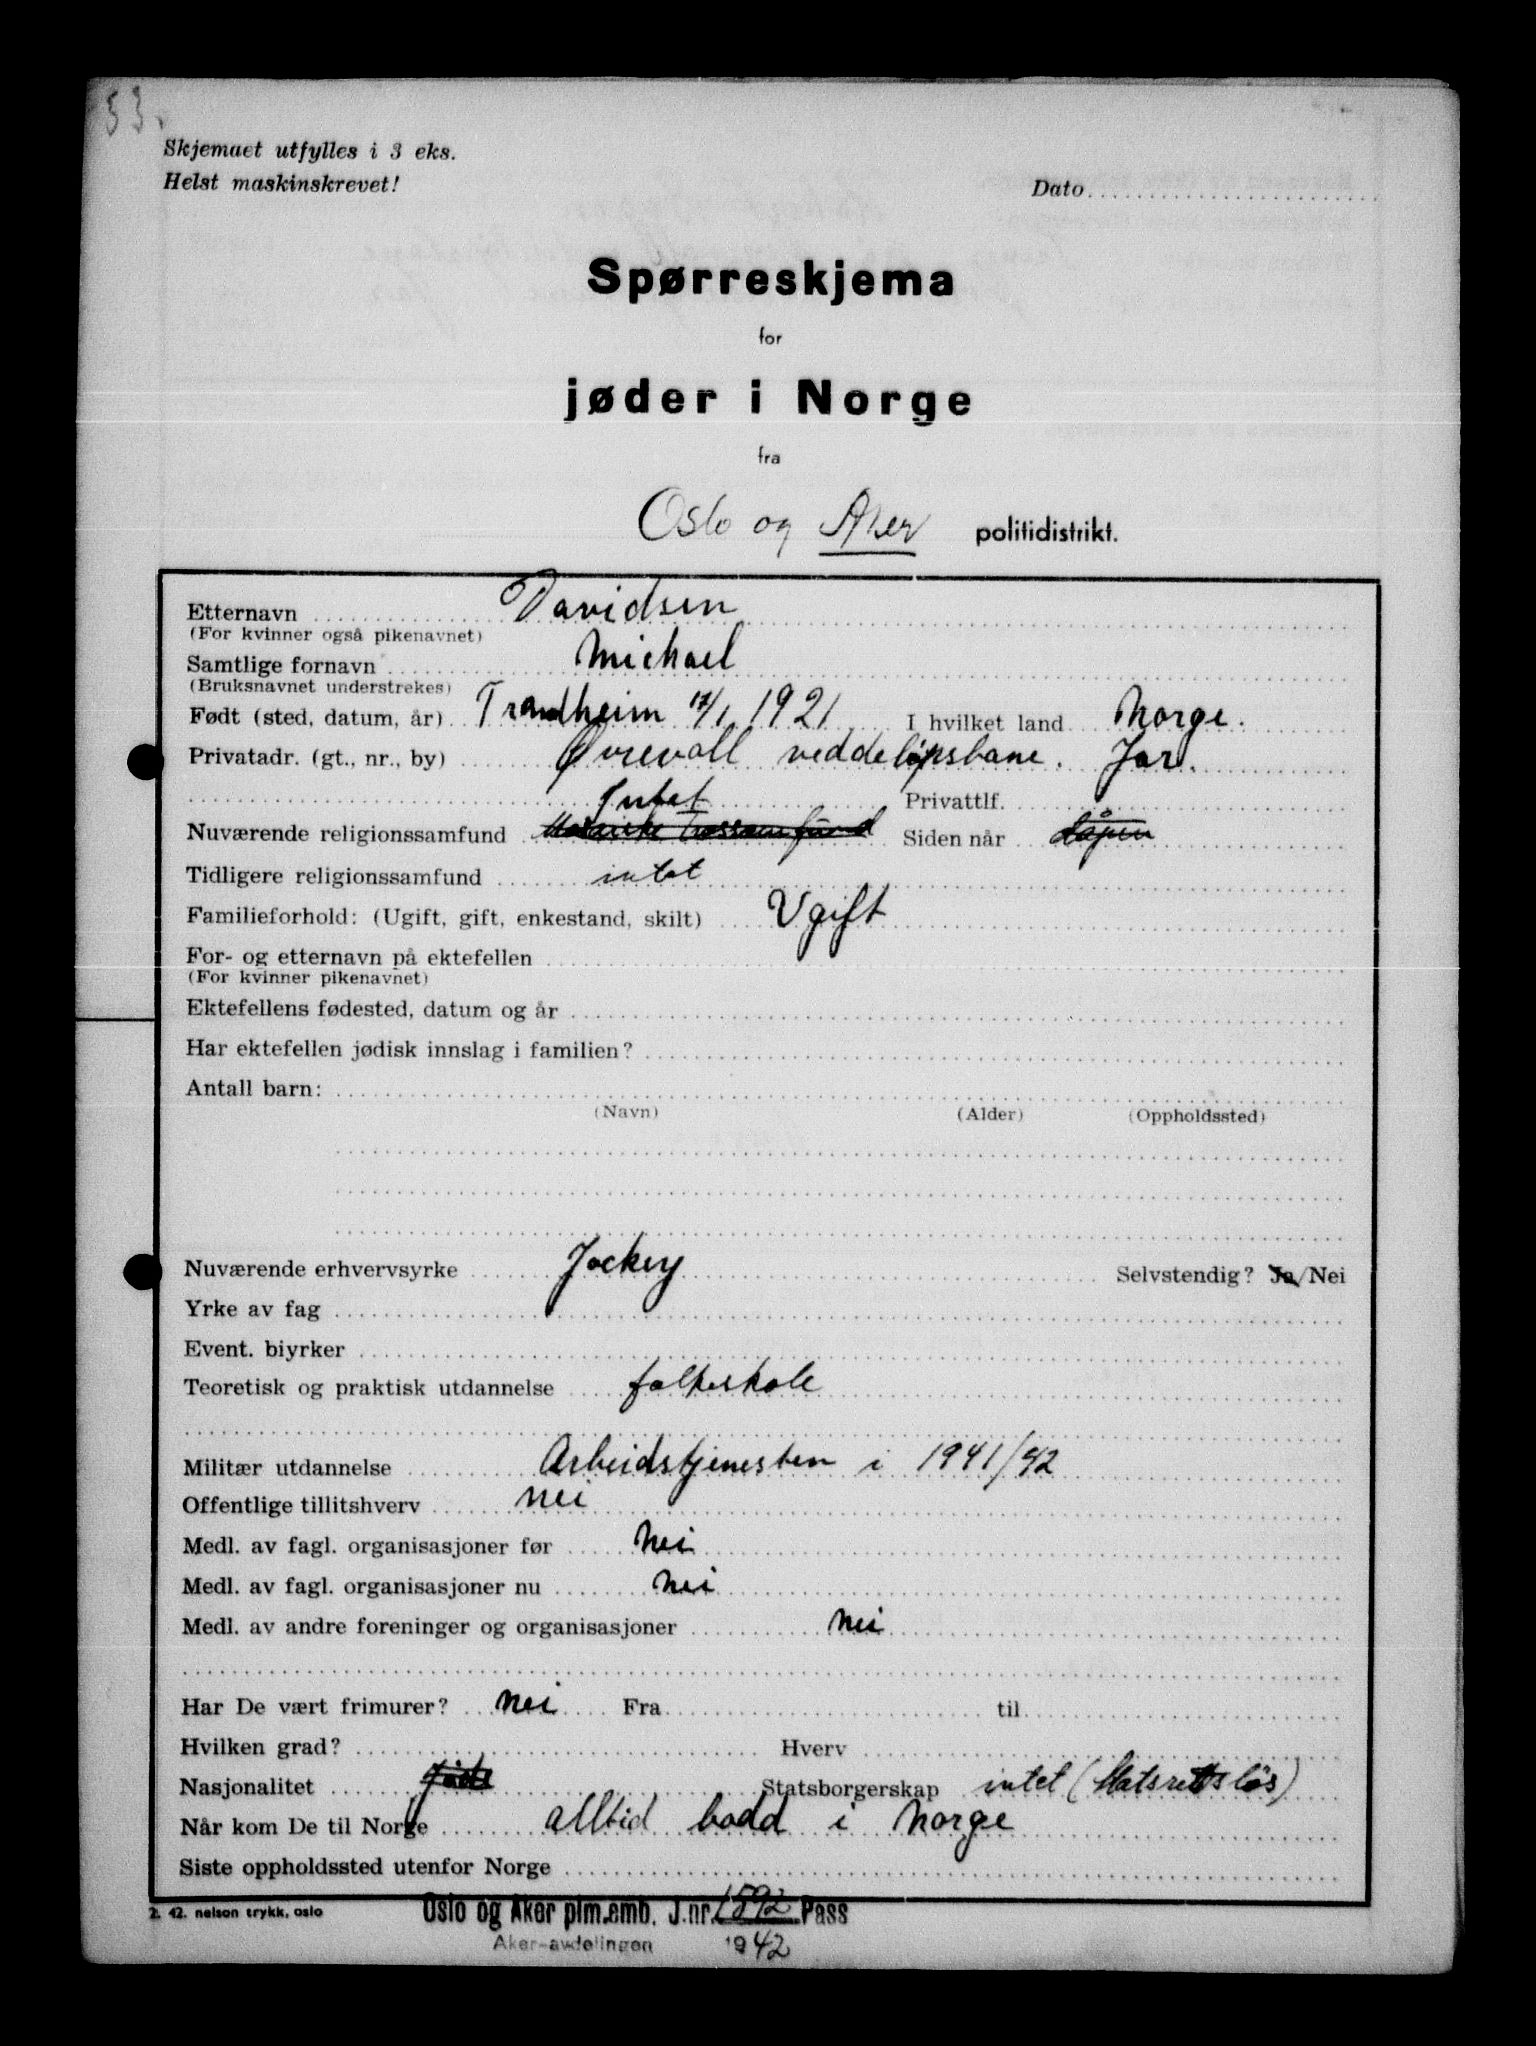 53.
Skjemaet utfylles i 3 eks.
Helst maskinskrevet!
Dato
Spørreskjema
for
jøder i Norge
fra
Oslo og Aker politidistrikt.
Etternavn Davidsen
(For kvinner også pikenavnet)
Samtlige fornavn Michael
(Bruksnavnet understrekes)
Født (sted, datum, år) Trondheim 17/1 1921 I hvilket land Norge.
Privatadr. (gt., nr., by) Øvrevoll veddeløpsbane. Jar.
Privattlf.
Intet
Nuværende religionssamfund Mosaiske Trossamfund Siden når
Tidligere religionssamfund intet
Familieforhold: (Ugift, gift, enkestand, skilt) Ugift
For- og etternavn på ektefellen
(For kvinner pikenavnet)
Ektefellens fødested, datum og år
Har ektefellen jødisk innslag i familien?
Antall barn:
(Navn) (Alder) (Oppholdssted)
Nuværende erhvervsyrke Jockey Selvstendig? Ja/Nei
Yrke av fag
Event. biyrker
Teoretisk og praktisk utdannelse folkeskole
Militær utdannelse Arbeidstjenesten i 1941/42
Offentlige tillitshverv nei
Medl. av fagl. organisasjoner før Nei
Medl. av fagl. organisasjoner nu nei
Medl. av andre foreninger og organisasjoner nei
Har De vært frimurer? nei Fra til
Hvilken grad? Hverv
Nasjonalitet jøde Statsborgerskap intet (Statsrettsløs)
Når kom De til Norge alltid bodd i Norge
Siste oppholdssted utenfor Norge
2. 42. nelson trykk, oslo
Oslo og Aker plm.emb. J.nr. 1592 Pass
Aker-avdelingen 1942